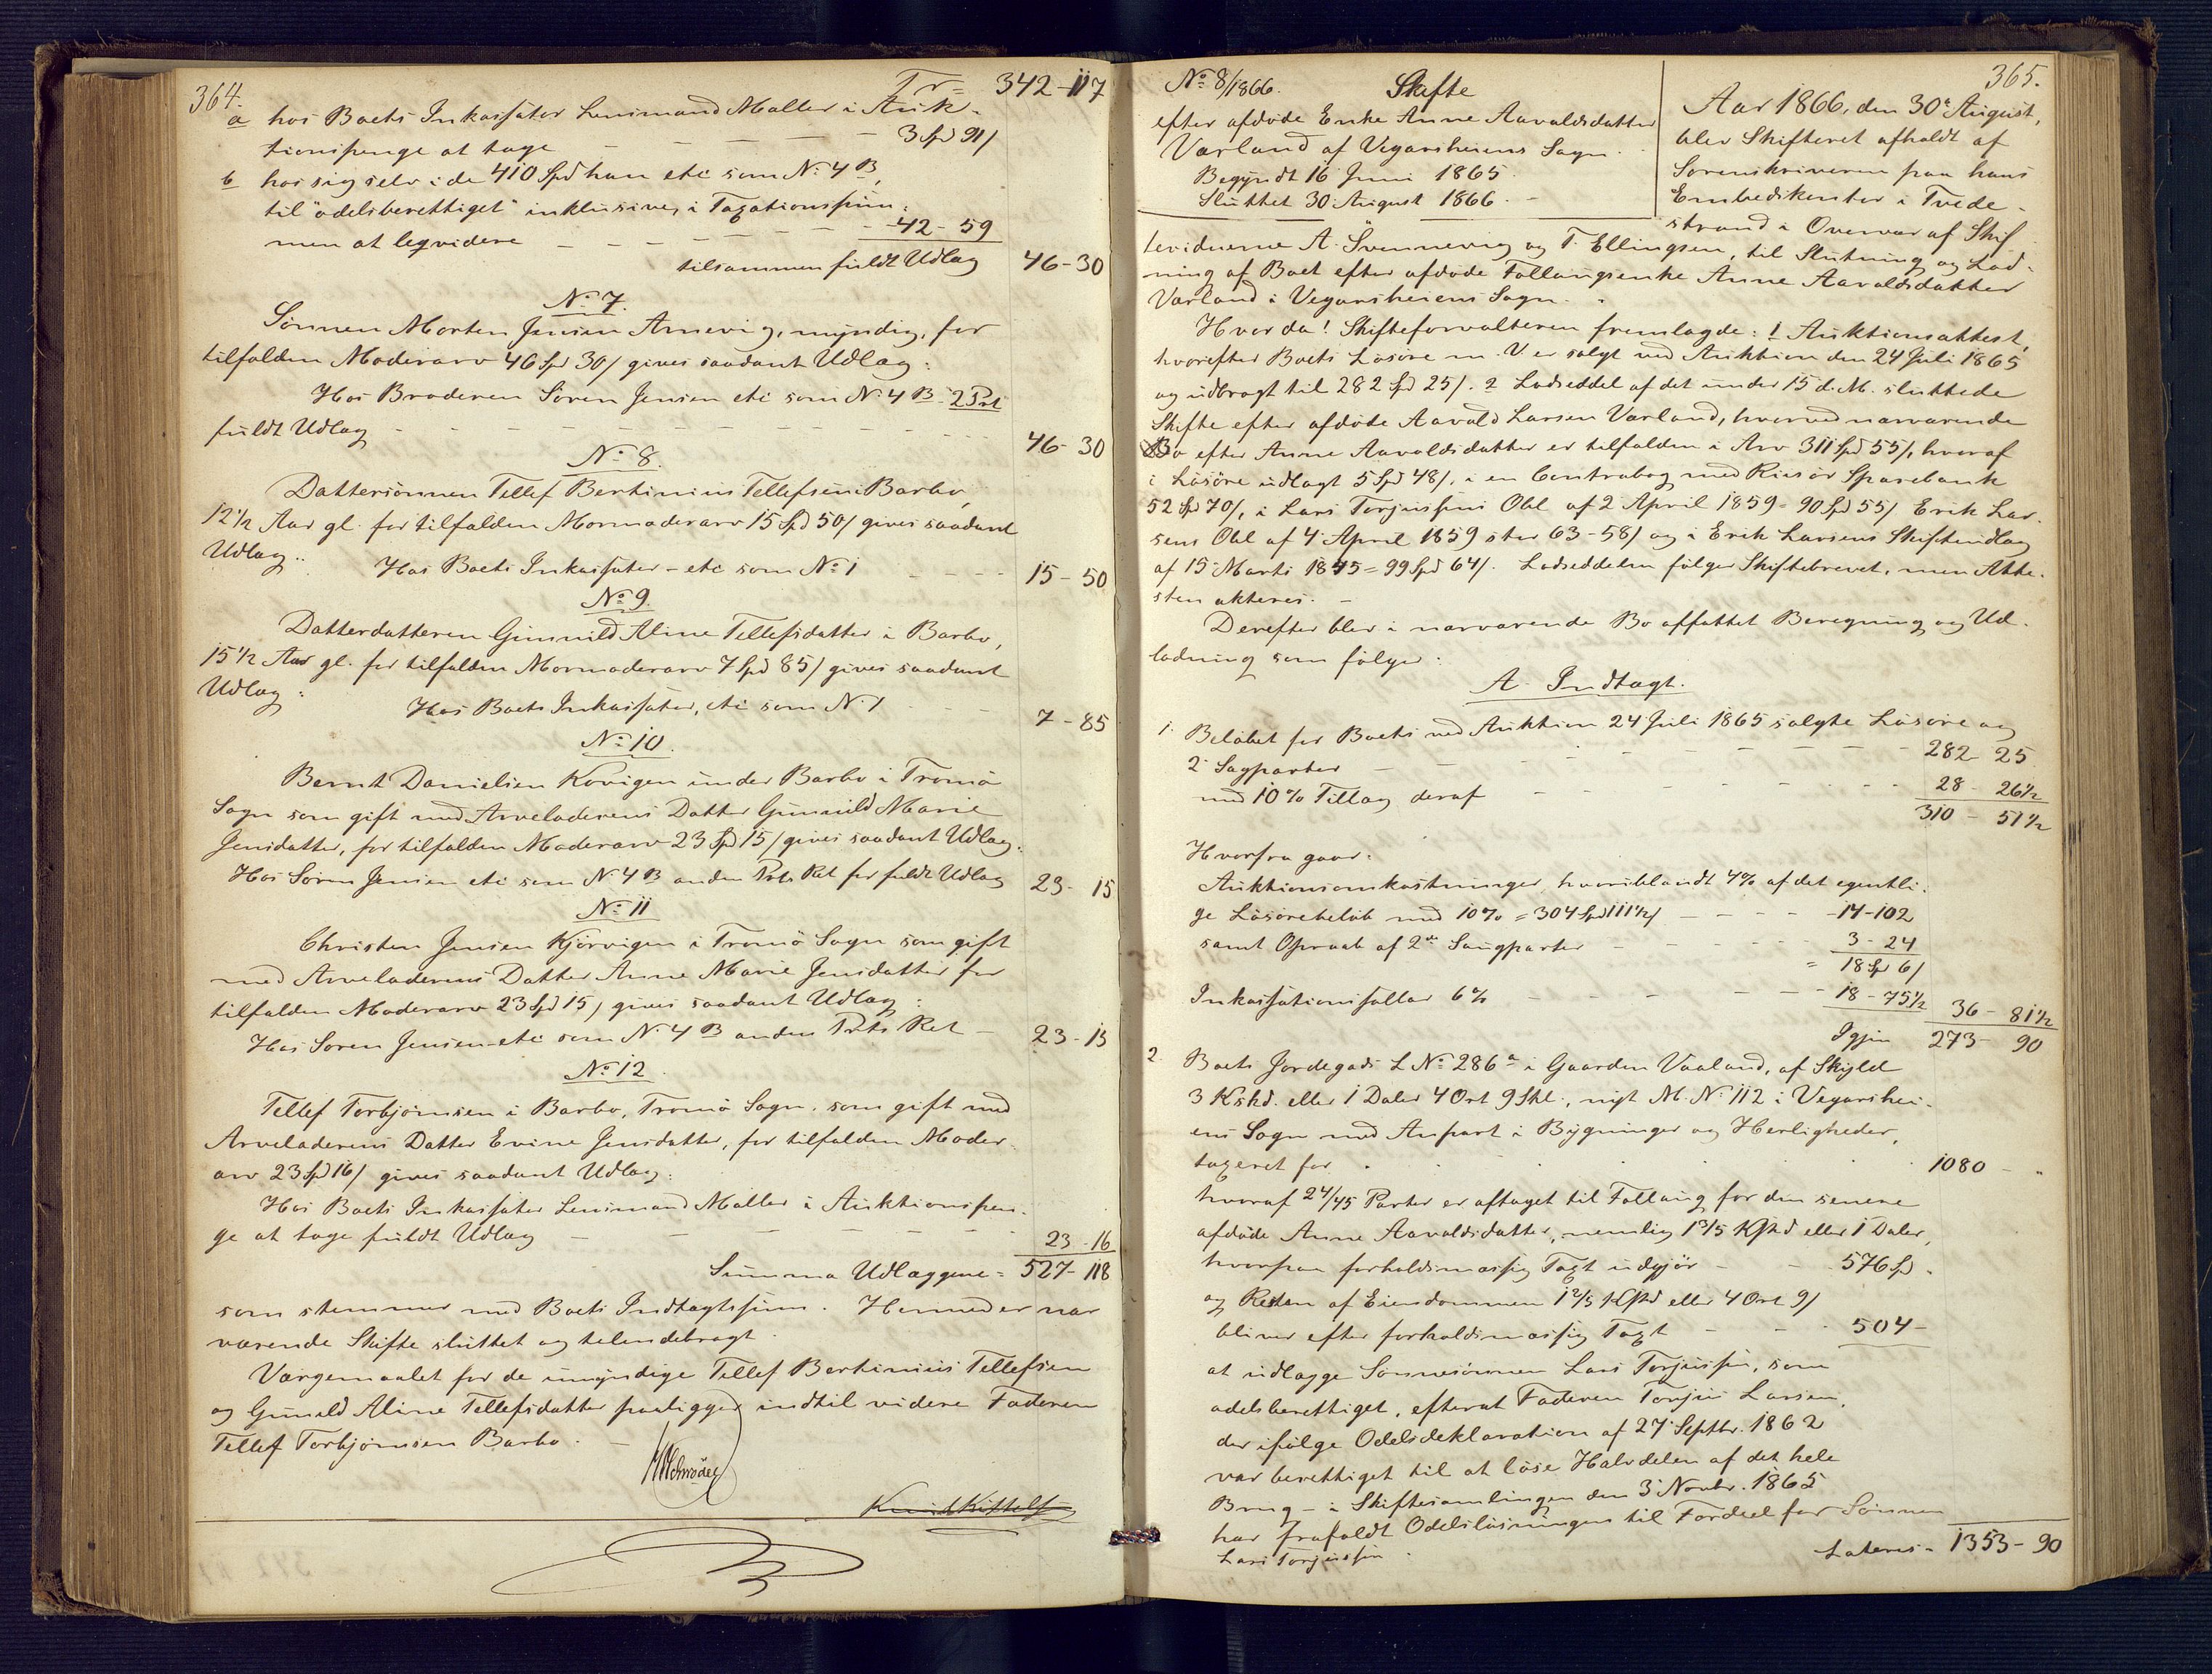 364.
Tr= 342-117
a hos Boets Inkassator Lensmand Møller i Auk-
tionspenge at tage — — — — 3 Spd 91/
b hos sig selv i de 410 Spd han etc som No 4 B,
til "odelsberettiget" inklusive, i Taxationssum-
men at leqvidere — — — — — — 42- 59
tilsammen fuldt Udlæg 46-30
No 7.
Sønnen Morten Jensen Arnevig, myndig, for
tilfalden Moderarv 46 Spd 30/ gives saadant Udlæg:
Hos Broderen Søren Jensen etc som No 4 B. 2 Prt
fuldt Udlæg - - - - - - 46-30
No 8.
Dattersønnen Tellef Bertinius Tellefsen i Barbo,
12 1/2 Aar gl. for tilfalden Mormoderarv 15 Spd 50/ gives saadant
Udlæg:
Hos Boets Inkassator - etc som No 1 - - - - 15-50
No 9.
Datterdatteren Gunnild Aline Tellefsdatter i Barbo,
15 1/2 Aar gl. for tilfalden Mormoderarv 7 Spd 85/ gives saadant
Udlæg:
Hos Boets Inkassator, etc som No 1 - - - 7-85
No 10.
Bernt Danielsen Kovigen under Barbo i Tromø
Sogn som gift med Arveladerens Datter Gunnild Marie
Jensdatter, for tilfalden Moderarv 23 Spd 15/ gives saadant Udlæg:
Hos Søren Jensen etc som No 4 B anden Prts Ret for fuldt Udlæg 23-15
No 11
Christen Jensen Kjørvigen i Tromø Sogn som gift
med Arveladerens Datter Anne Marie Jensdatter for
tilfalden Moderarv 23 Spd 15/ gives saadant Udlæg:
Hos Søren Jensen etc som No 4 B anden Prts Ret - 23-15
No 12.
Tellef Torbjørnsen i Barbo, Tromø Sogn, som gift med
Arveladerens Datter Evine Jensdatter, for tilfalden Moder-
arv 23 Spd 16/ gives saadant Udlæg:
Hos Boets Inkassator Lensmand Møller i Auktionspen-
ge at tage fuldt Udlæg — — — — 23-16
Summa Udlæggene = 527-118
som stemmer med Boets Indtægtssum. Hermed er nær
værende Skifte sluttet og tilendebragt.
Værgemaalet for de umyndige Tellef Bertinius Tellefsen
og Gunild Aline Tellefsdatter paaligger indtil videre Faderen
Tellef Torbjørnsen Barbo. —
365.
No 8/1866. Skifte
efter afdøde Enke Anne Aavaldsdatter
Varland af Vegarsheiens Sogn.
Begyndt 16 Juni 1865.
Sluttet 30 August 1866. -
Aar 1866, den 30te August,
blev Skifteret afholdt af
Sorenskriveren paa hans
Embedskontor i Tvede-
strand i Overvær af Skif
tevidnerne A. Svennevig og T. Ellingsen, til Slutning og Lod-
ning af Boet efter afdøde Follaugsenke Anne Aavaldsdatter
Varland i Vegarsheiens Sogn.
Hvorda! Skifteforvalteren fremlagde: 1 Auktionsattest,
hvorefter Boets Løsøre m. V. er solgt ved Auktion den 24 Juli 1865
og udbragt til 282 Spd 25/. 2 Lodseddel af det under 15 d. M. sluttede
Skifte efter afdøde Aavald Larsen Varland, hvorved nærværende
Bo efter Anne Aavaldsdatter er tilfalden i Arv 311 Spd 55/, hvoraf
i Løsøre udlagt 5 Spd 48/, i en Contrabog med Risør Sparebank
52 Spd 70/, i Lars Torjussens Obl af 2 April 1859 = 90 Spd 55/ Erik Lar-
sens Obl af 4 April 1859 stor 63-58/ og i Erik Larsens Skifteudlæg
af 15 Marts 1845 = 99 Spd 64/. Lodseddelen følger Skiftebrevet, men Atte-
sten akteres. —
Derefter blev i nærværende Bo affattet Beregning og Ud-
lodning som følger:
A. Indtægt.
1. Beløbet for Boets ved Auktion 24 Juli 1865 solgte Løsøre og
2 Sagparter — — — — 282- 25
med 10% Tillæg deraf — — — 28 - 26 1/2
310 - 51 1/2
Hvorfra gaar:
Auktionsomkostninger, hvoriblandt 4% af det egentli-
ge Løsørebeløb med 10% = 304 Spd 111 1/2/ — — — -14-102
samt Opraab af 2de Saugparter — — — 3 - 24
= 18 Spd 6/
Inkassationssallær 6% — — — — 18 - 75 1/2 36 - 81 1/2
Igjen 273- 90
2. Boets Jordegods L No 286 a i Gaarden Vaaland, af Skyld
3 Kskd. eller 1 Daler 4 Ort 9 Skl., nyt M. No 112 i Vegarshei-
ens Sogn med Anpart i Bygninger og Herligheder,
taxeret for . . . . 1080 - "
hvoraf 24/45 Parter er aftaget til Follaug for den senere
afdøde Anne Aavaldsdatter, nemlig 1 3/5 Kskd eller 1 Daler,
hvorpaa forholdsmæssig Taxt udgjør — — 576 Spd -
og Resten af Eiendommen 1 2/5 Kskd eller 4 Ort 9/
bliver efter forholdsmæssig Taxt — — 504 -
at udlægge Sønnesønnen Lars Torjussen, som
odelsberettiget, efterat Faderen Torjus Larsen,
der ifølge Odelsdeklaration af 27 Septbr. 1862
var berettiget til at løse Halvdelen af det hele
Brug - i Skiftesamlingen den 3 Novbr. 1865
har frafaldt Odelsløsningen til Fordeel for Sønnen
Lars Torjussen.
Lateris = 1353-90